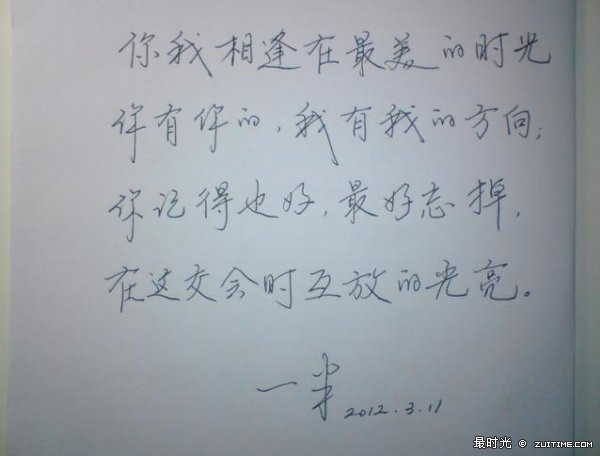 你我相逢在最美的时光
你有你的，我有我的方向；
你记得也好，最好忘掉，
在这交会时互放的光亮。
一半 2012.3.11
最时光 © ZUITIME.COM